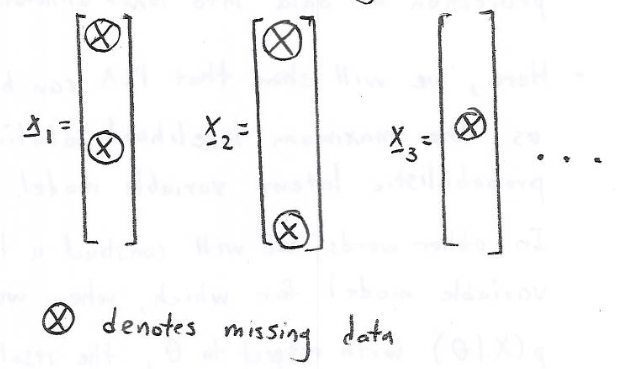 x₁ = [⊗ ⊗] x₂ = [⊗ ⊗] x₃ = [⊗] . . .
⊗ denotes missing data